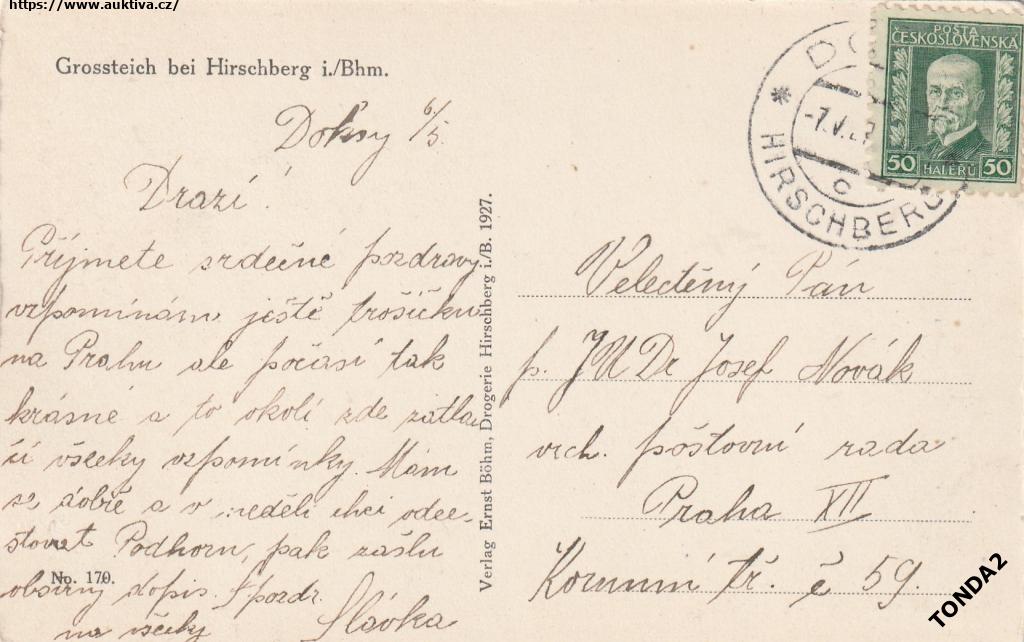 https://www.auktiva.cz/
Grossteich bei Hirschberg i./Bhm.
Doksy 6/5
Drazí!
Příjmete srdečné pozdravy
vzpomínám ještě trošičku
na Prahu ale počasí tak
krásné a to okolí zde zatla
čí všecky vzpomínky. Mám
se dobře a v neděli chci odce-
stovat Podhorn, pak zašlu
obsírný dopis. S pozdr.
na všecky Slávka
No. 170.
Verlag Ernst Böhm, Drogerie Hirschberg i./B. 1927.
POŠTA
ČESKOSLOVENSKÁ
50 HALÉŘŮ 50
HIRSCHBERG
-7.V.2
c
Velectěný Pán
p. JUDr Josef Novák
vrch. poštovní rada
Praha XII
Korunní tř. č 59.
TONDA2